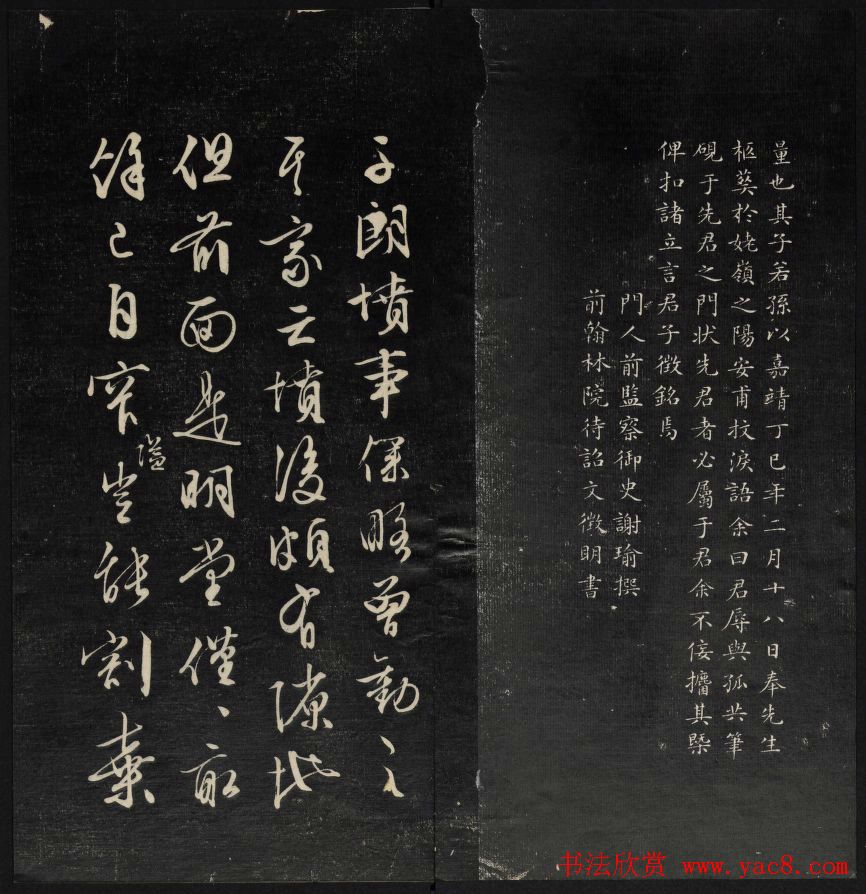 量也其子若孫以嘉靖丁巳年二月十八日奉先生
柩葬於姥嶺之陽安甫抆淚語余曰君辱與孤共筆
硯于先君之門狀先君者必屬于君余不佞攟其槩
俾扣諸立言君子徵銘焉
門人前監察御史謝瑜撰
前翰林院待詔文徵明書
子朗墳事保略曾勸之
其家云墳後頗有隙地
但前面是明堂僅〻畝
餘已自窄隘豈能割棄
书法欣赏 www.yac8.com